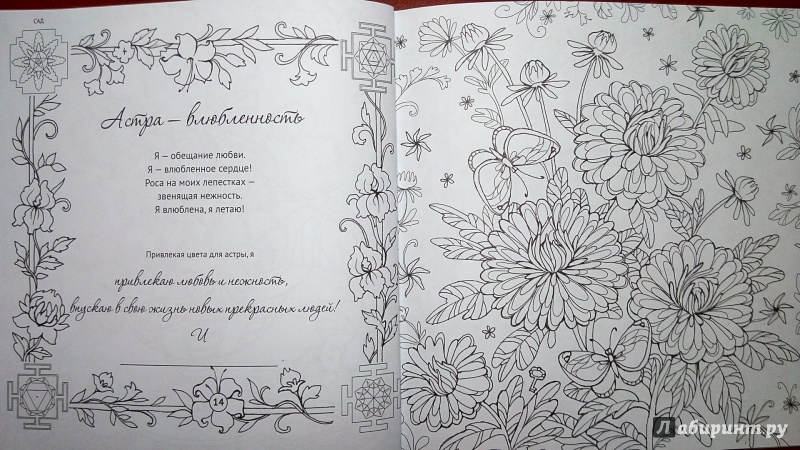 САД
Астра — влюбленность
Я — обещание любви.
Я — влюбленное сердце!
Роса на моих лепестках —
звенящая нежность.
Я влюблена, я летаю!
Привлекая цвета для астры, я
привлекаю любовь и нежность,
впускаю в свою жизнь новых прекрасных людей!
И
14
Лабиринт.ру